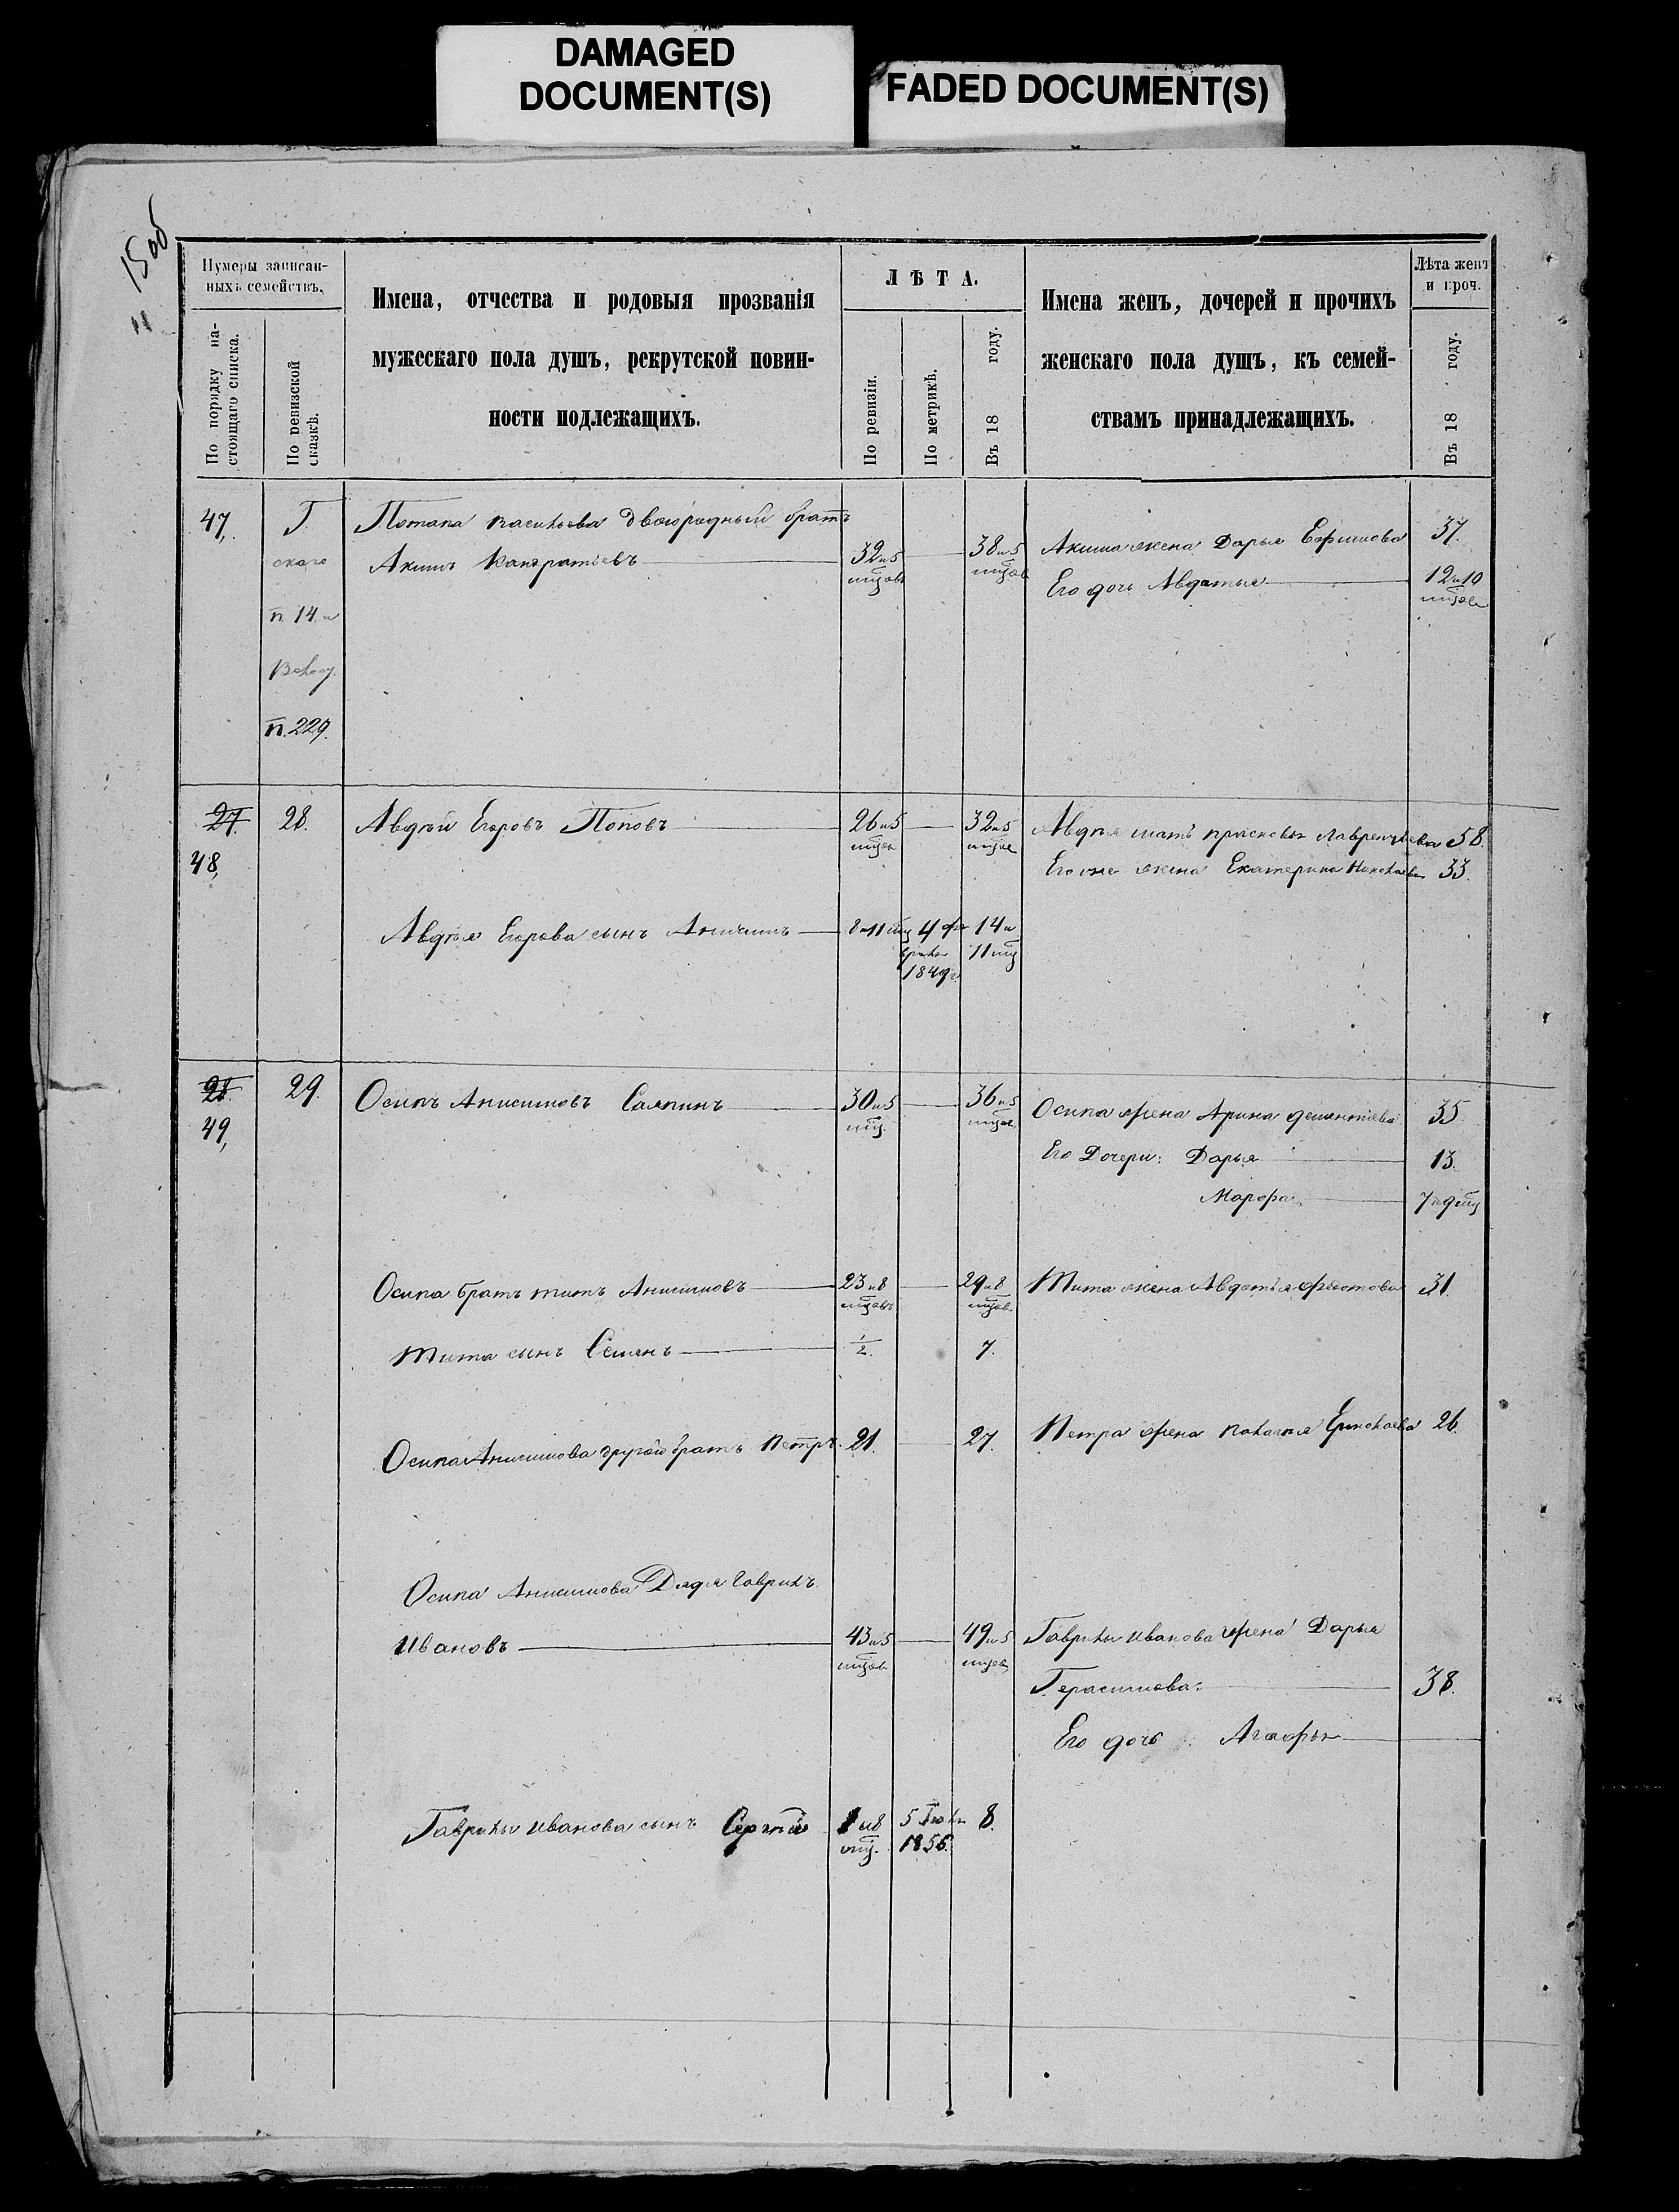 DAMAGED
DOCUMENT(S)
FADED DOCUMENT(S)
15об
Нумеры записан-
ныхъ семействъ.
По порядку на-
стоящаго списка.
По ревизской
сказкѣ.
Имена, отчества и родовыя прозванія
мужескаго пола душъ, рекрутской повин-
ности подлежащихъ.
ЛѢТА.
По ревизіи.
По метрикѣ.
Въ 18 году.
Имена женъ, дочерей и прочихъ
женскаго пола душъ, къ семей-
ствамъ принадлежащихъ.
Лѣта женъ
и проч.
Въ 18 году.
47,
Г.
скаго
п. 14 и
п. 229.
Потапа Васильева двоюродный братъ
Акимъ Кандратьевъ
32 и 5
мцовъ
38 и 5
мцов
Акима жена Дарья Ефимова 37.
Его дочь Авдотья 12 и 10
мцов
27.
48,
28.
Авдѣй Егоровъ Поповъ
26 и 5
мцов
32 и 5
мцов
Авдѣя мать Прасковья Лаврентьева 58.
Его же жена Екатерина Николаева 33.
Авдѣя Егорова сынъ Анисимъ
8 и 11 мц
4 фе
враля
1849 г.
14 и
11 мц
28.
49,
29.
Осипъ Анисимовъ Саяпинъ
30 и 5
мц
36 и 5
мцов
Осипа жена Арина Дементьева 35
Его Дочери: Дарья 13.
Марфа 7 и 9 мц
Осипа братъ Титъ Анисимовъ
23 и 8
мцовъ
29 и 8
мцов
Тита жена Авдотья Феостова 31.
Тита сынъ Семенъ 1/2. 7.
Осипа Анисимова другой братъ Петръ. 21. 27.
Петра жена Пелагея Ермолаева 26.
Осипа Анисимова Дядя Гаврилъ
Ивановъ
43 и 5
мцов
49 и 5
мцов
Гаврилы Иванова жена Дарья
Герасимова: 38.
Его дочь: Агафья
Гаврилы Иванова сынъ Сергѣй
1 и 8
мц.
5 Іюля
1856.
8.